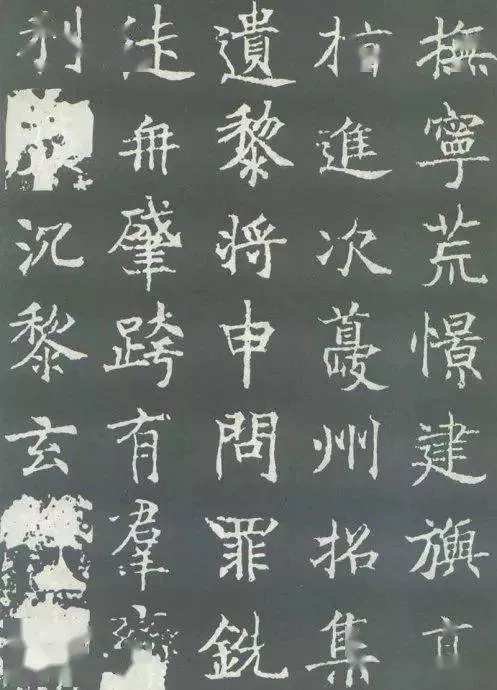 撫寧荒憬建旟
進次州招集
遺黎将申問罪銑
徒肇跨有羣
利沉黎玄